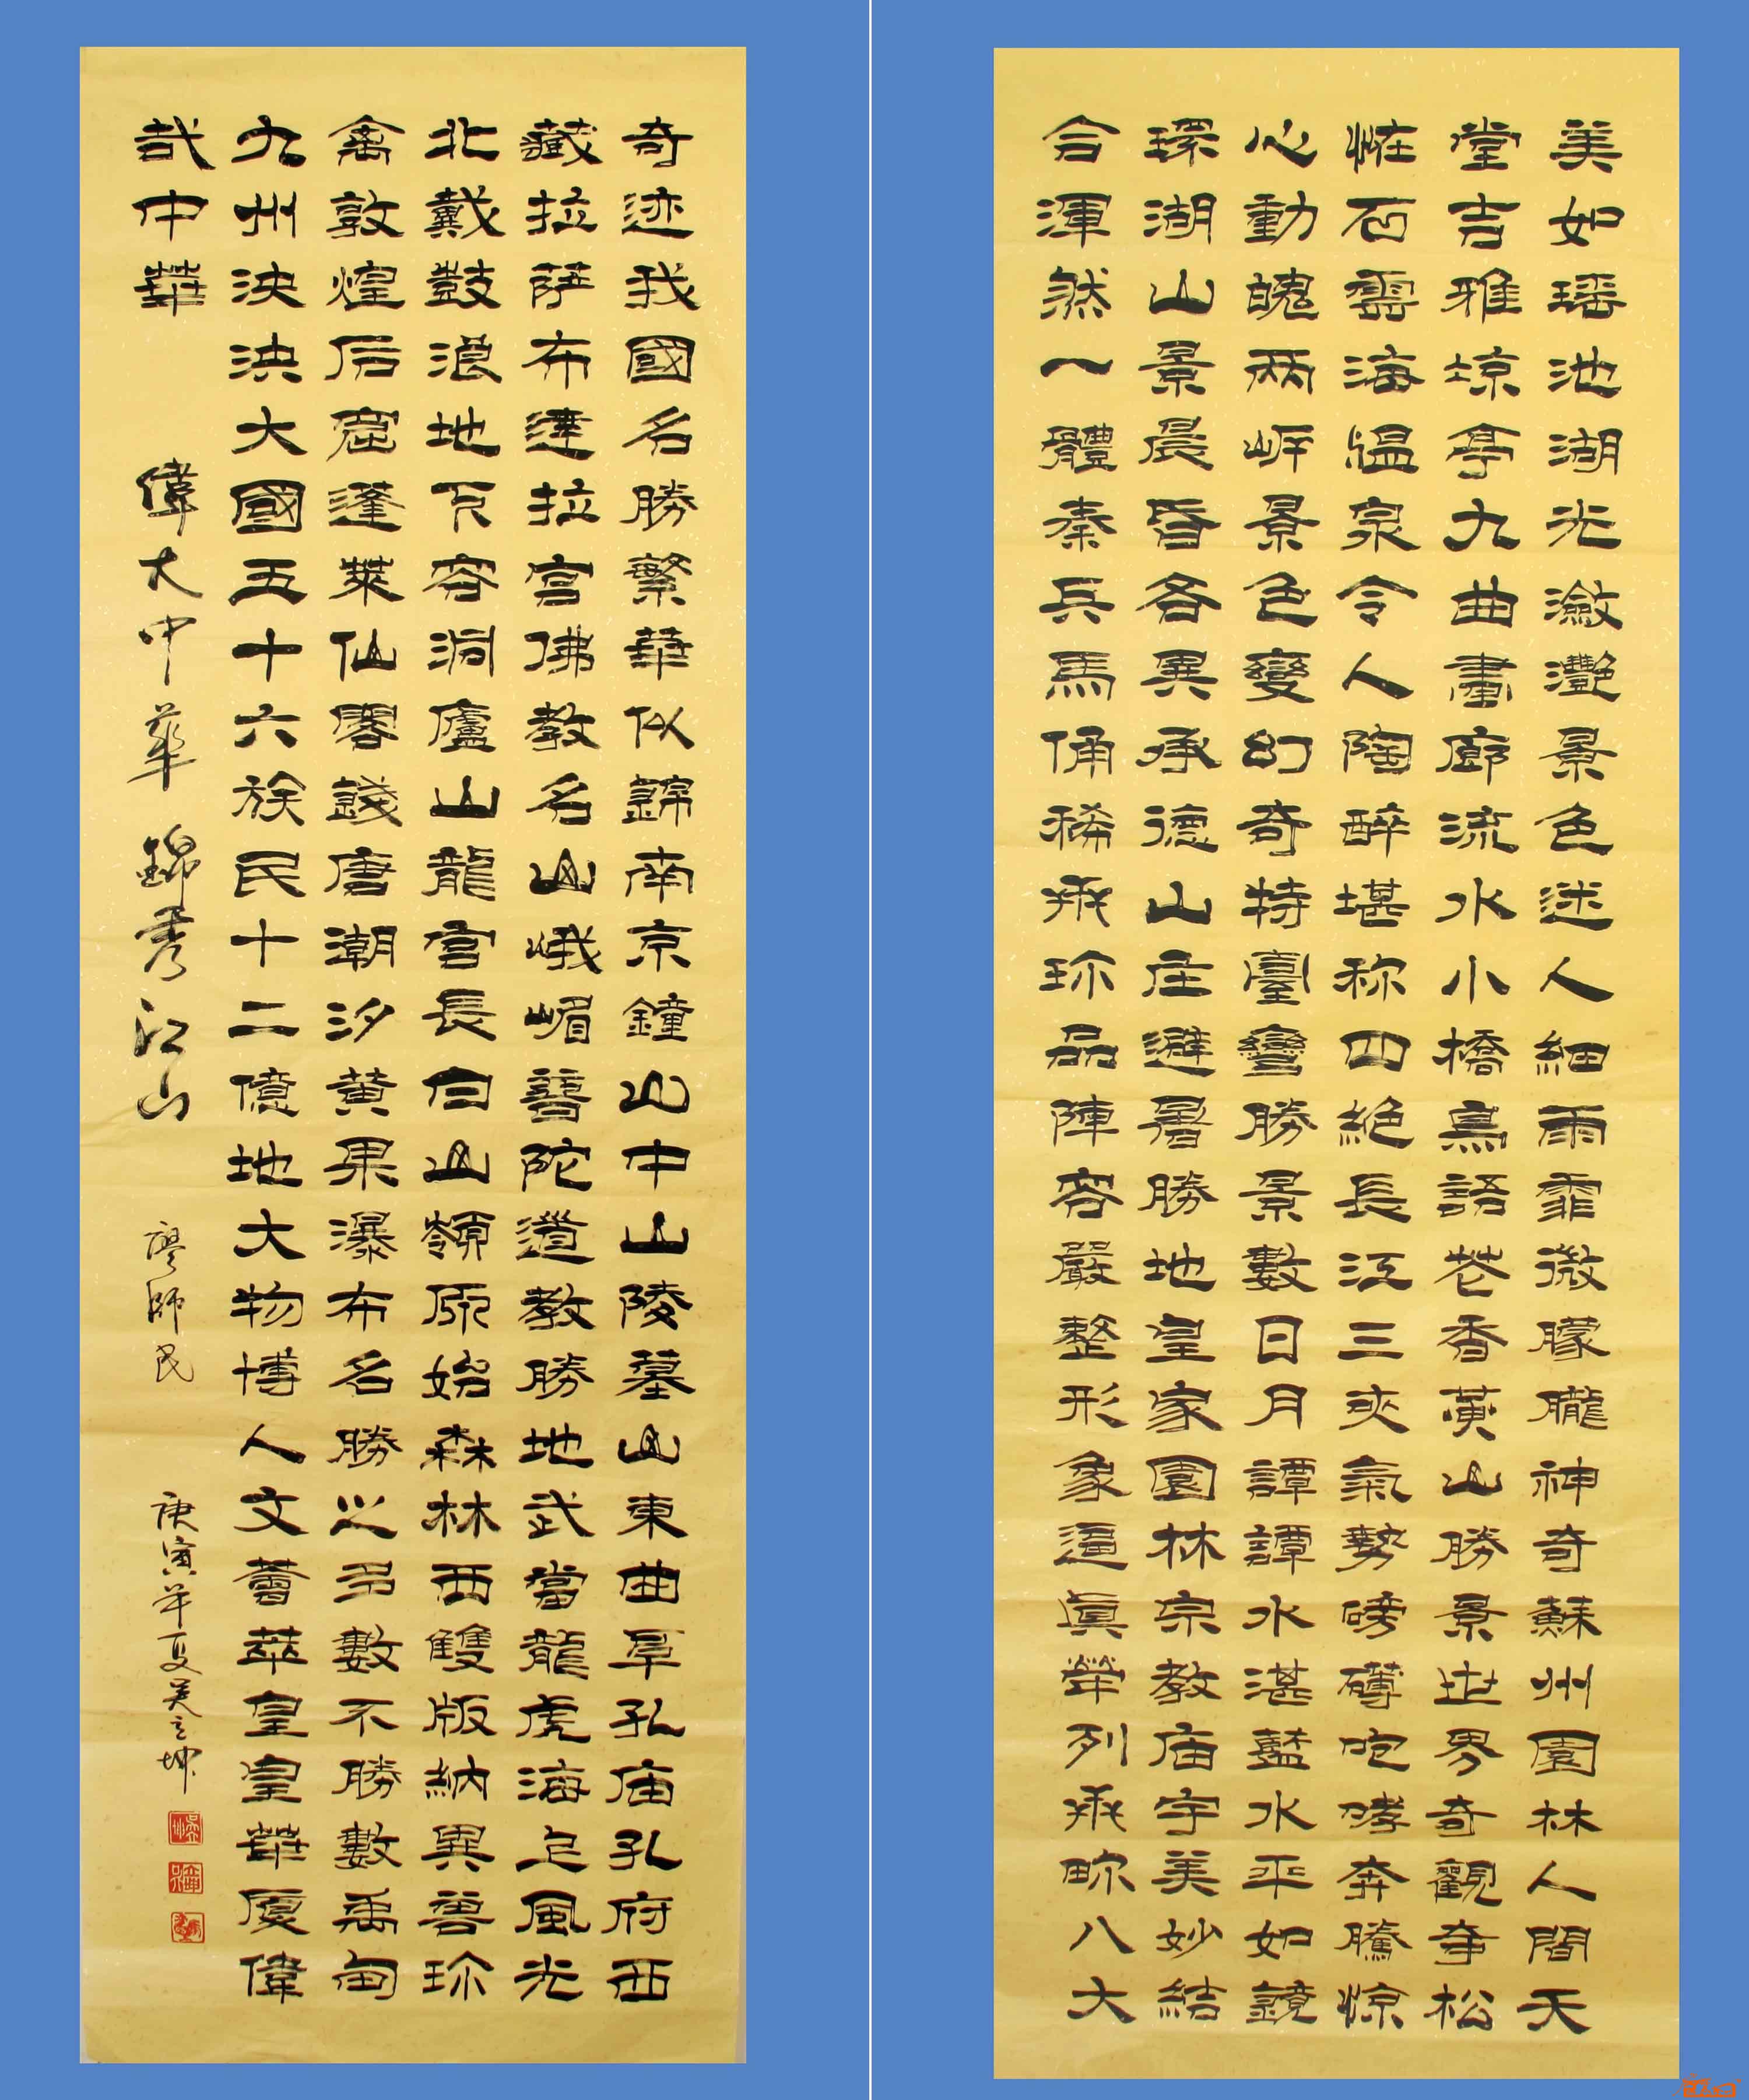 美如瑶池湖光瀲灧景色迷人細雨霏微朦朧神奇蘇州園林人間天
堂吉雅琼亭九曲畫廊流水小橋鳥語花香黄山勝景世界奇觀奇松
怪石雲海温泉令人陶醉堪称四絶長江三夾氣勢磅礴咆哮奔騰惊
心動魄兩岍景色變幻奇特臺彎勝景數日月譚譚水湛藍水平如鏡
環湖山景晨昏各異承德山庄避暑勝地皇家園林宗教庙宇美妙結
合渾然一體秦兵馬俑稀珎品陣容嚴整形象逼眞榮列八大
奇迹我國名勝繁華似錦南京鐘山中山陵墓山東曲阜孔庙孔府西
藏拉萨布達拉宫佛教名山峨嵋普陀道教勝地武當龍虎海上風光
北戴鼓浪地下容洞廬山龍宫長白山嶺原始森林西雙版納異兽珎
禽敦煌石窟蓬萊仙閣錢唐潮汐黄果瀑布名勝之多數不勝數禹甸
九州泱泱大國五十六族民十二億地大物博人文薈萃皇皇華廈偉
哉中華 偉大中華錦秀江山 廖師民 庚寅年夏吴立坤